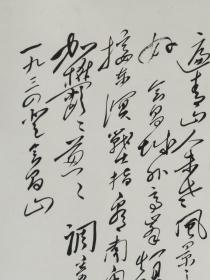 遍青山人未老風景
好會昌城外高峯顛
接東溟戰士指看南
加鬱〻葱〻調寄
一九三四登會昌山